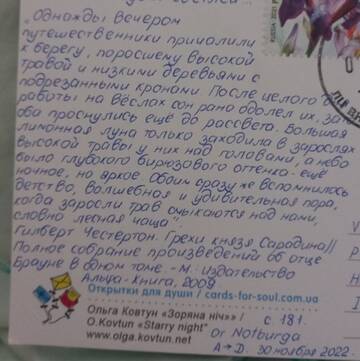 „Однажды вечером
путешественники причалили
к берегу, поросшему высокой
травой и низкими деревьями с
подрезанными кронами. После целого дня
работы на вёслах сон рано одолел их, за
оба проснулись ещё до рассвета. Большая
лимонная луна только заходила в зарослях
высокой травы у них над головами, а небо
было глубокого бирюзового оттенка - ещё
ночное, но яркое. Обоим сразу же вспомнилось
детство, волшебная и удивительная пора,
когда заросли трав смыкаются над нами,
словно лесная чаща"
Гилберт Честертон. Грехи князя Сарадина//
Полное собрание произведений об отце
Брауне в одном томе. - М. Издательство
Альфа-Книга, 2009
с. 181.
Открытки для души / cards-for-soul.com.ua
Ольга Ковтун «Зоряна ніч» /
O.Kovtun "Starry night"
www.olga-kovtun.net
Or Notburga
A → D. 30 ноября 2022.
RUSSIA 2021